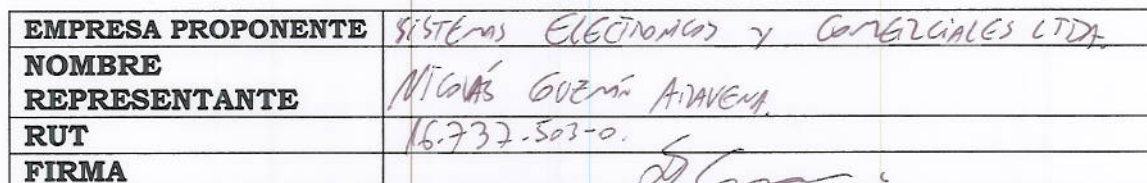 EMPRESA PROPONENTE SISTEMAS ELECTRONICOS Y COMERCIALES LTDA.
NOMBRE
REPRESENTANTE NICOLÁS GUZMÁN ARAVENA.
RUT 16.737.503-0.
FIRMA